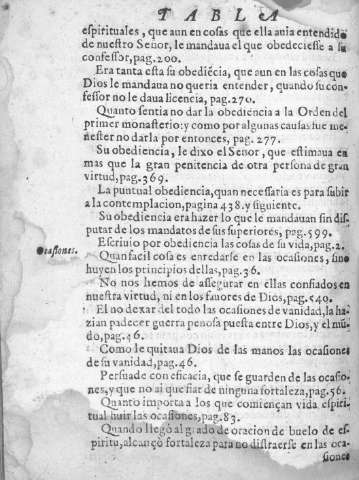 TABLA
espirituales, que aun en cosas que ella auia entendido
de nuestro Señor, le mandaua el que obedeciesse a su
confessor, pag.200.
Era tanta esta su obediẽcia, que aun en las cosas que
Dios le mandaua no queria entender, quando su con-
fessor no le daua licencia, pag.270.
Quanto sentia no dar la obediencia a la Orden del
primer monasterio: y como por algunas causas fue me-
nester no darla por entonces, pag. 277.
Su obediencia, le dixo el Señor, que estimaua en
mas que la gran penitencia de otra persona de gran
virtud, pag.369.
La puntual obediencia, quan necessaria es para subir
a la contemplacion, pagina 438. y siguiente.
Su obediencia era hazer lo que le mandauan sin dis-
putar de los mandatos de sus superiores, pag.599.
Escriuio por obediencia las cosas de su vida, pag.2.
Ocasiones.
Quan facil cosa es enredarse en las ocasiones, sino
huyen los principios dellas, pag.36.
No nos hemos de assegurar en ellas confiados en
nuestra virtud, ni en los fauores de Dios, pag.540.
El no dexar del todo las ocasiones de vanidad, la ha-
zian padecer guerra penosa puesta entre Dios, y el mũ-
do, pag.46.
Como le quitaua Dios de las manos las ocasiones
de su vanidad, pag.46.
Persuade con eficacia, que se guarden de las ocasio-
nes, y que no ai que fiar de ninguna fortaleza, pag.56.
Quanto importa a los que comiençan vida espiri-
tual huir las ocasiones, pag.83.
Quando llegò al grado de oracion de buelo de es-
piritu, alcançò fortaleza para no distraerse en las oca-
siones